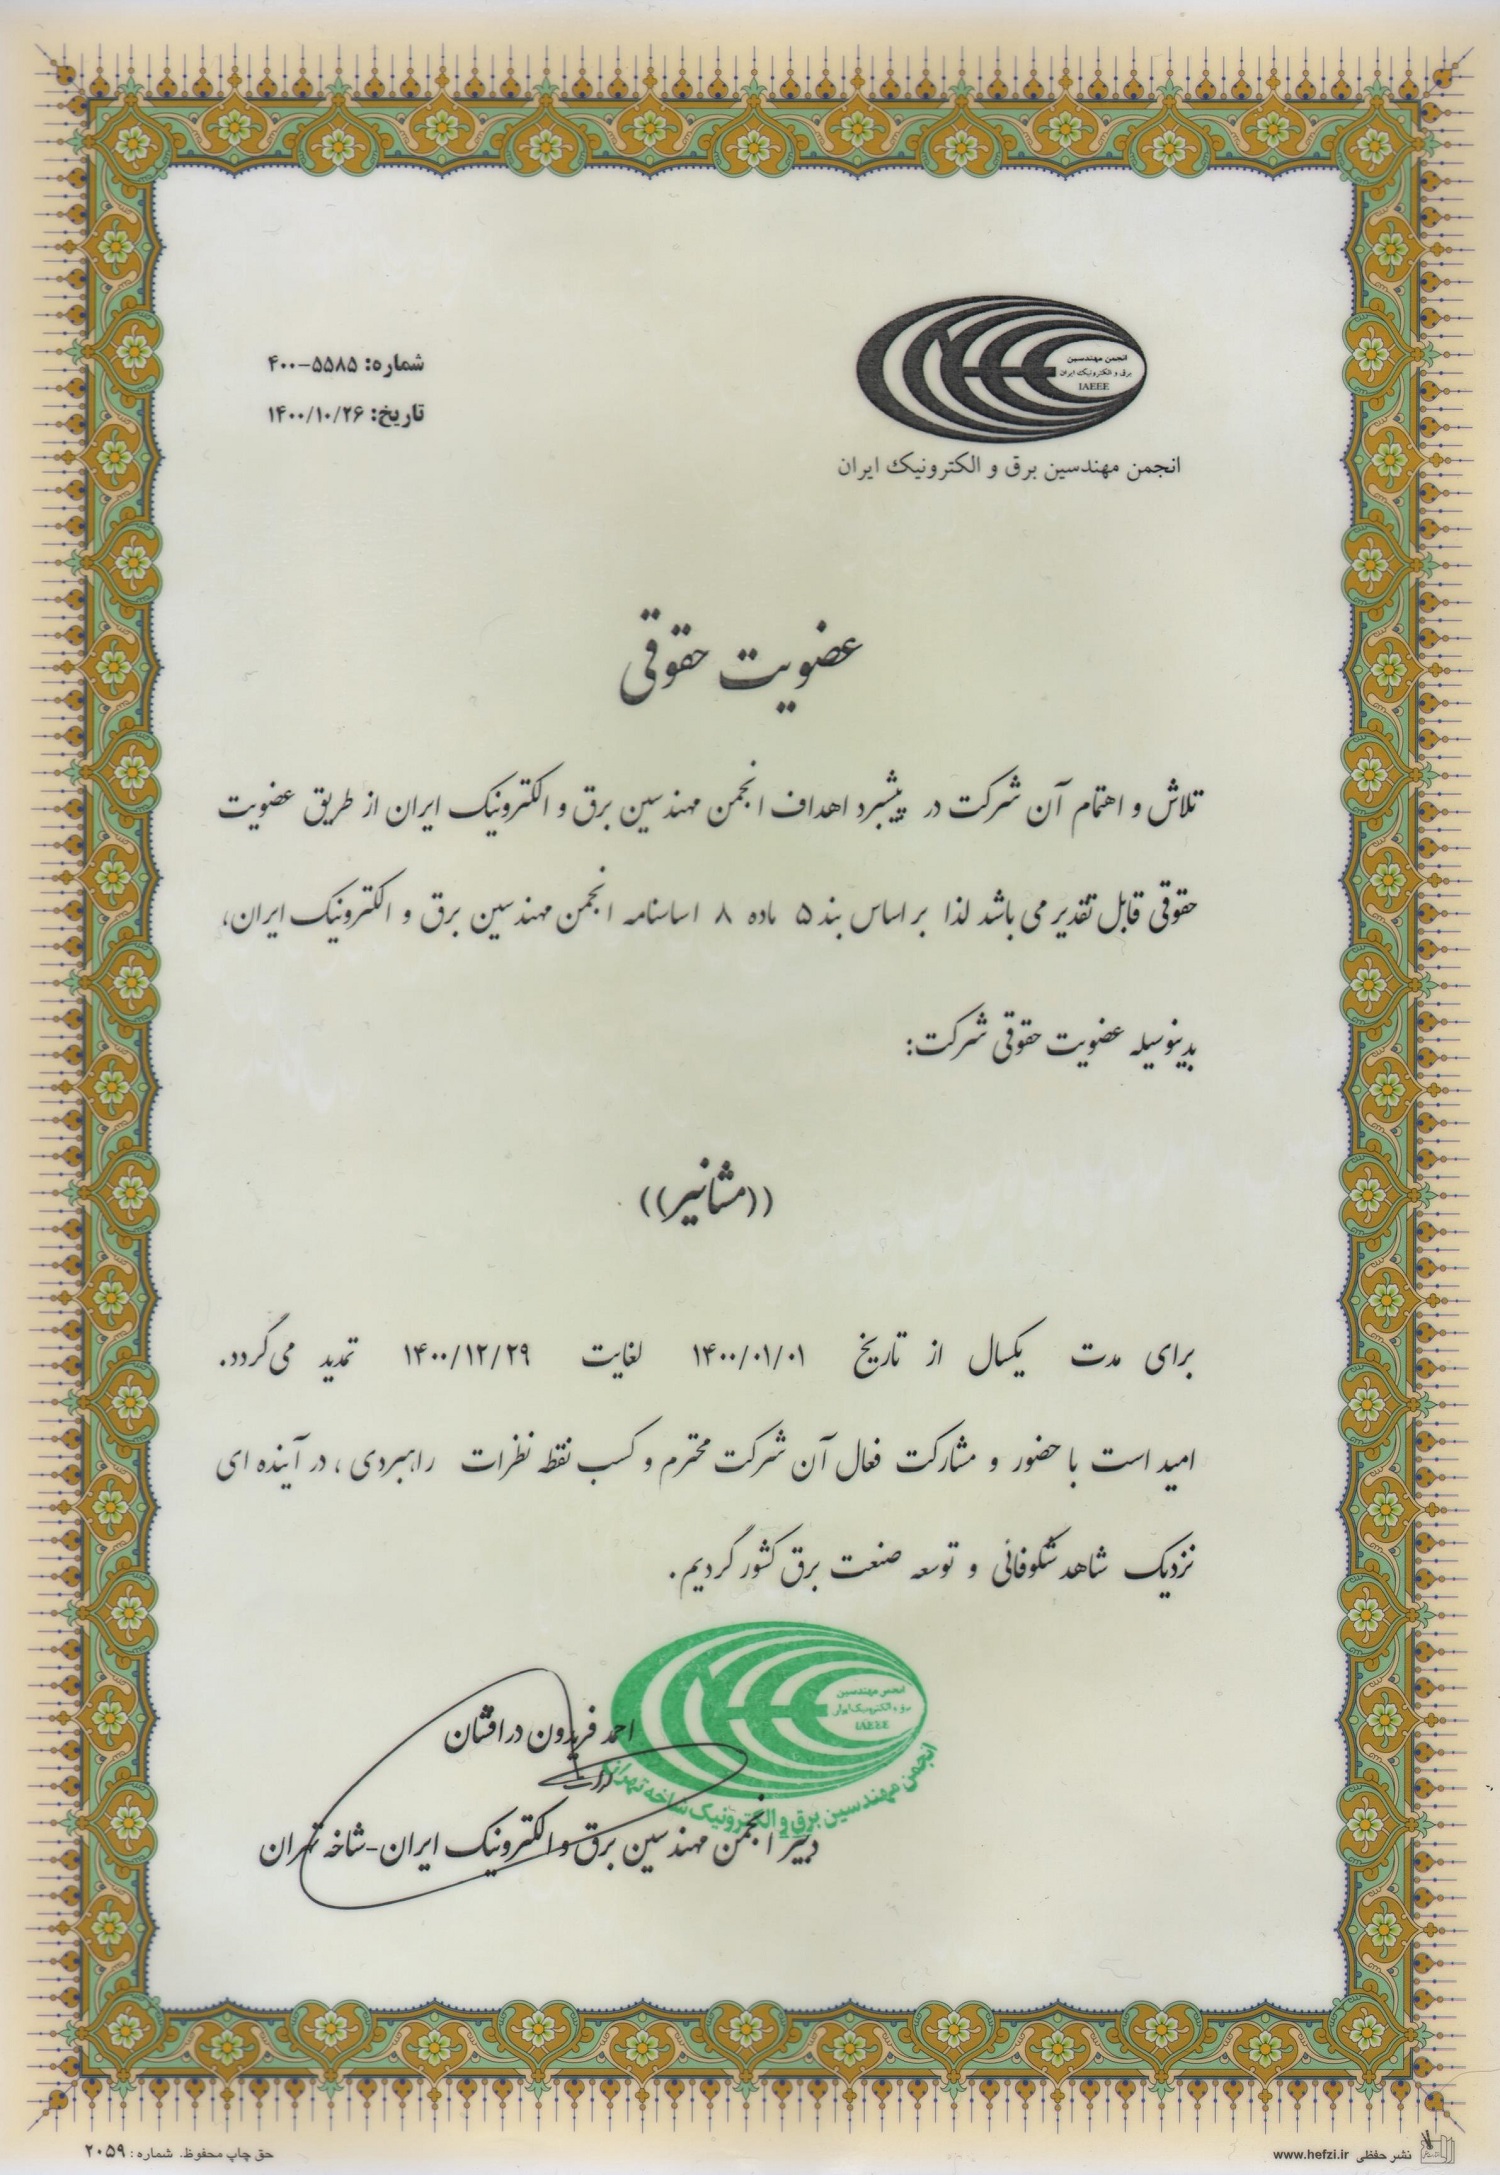 انجمن مهندسین
برق و الکترونیک ایران
IAEEE
انجمن مهندسین برق و الکترونیک ایران
شماره: ۵۵۸۵-۴۰۰
تاریخ: ۱۴۰۰/۱۰/۲۶
عضویت حقوقی
تلاش و اهتمام آن شرکت در پیشبرد اهداف انجمن مهندسین برق و الکترونیک ایران از طریق عضویت
حقوقی قابل تقدیر می باشد لذا بر اساس بند ۵ ماده ۸ اساسنامه انجمن مهندسین برق و الکترونیک ایران،
بدینوسیله عضویت حقوقی شرکت:
((مشانیر))
برای مدت یکسال از تاریخ ۱۴۰۰/۰۱/۰۱ لغایت ۱۴۰۰/۱۲/۲۹ تمدید می گردد.
امید است با حضور و مشارکت فعال آن شرکت محترم و کسب نقطه نظرات راهبردی، در آینده ای
نزدیک شاهد شکوفائی و توسعه صنعت برق کشور گردیم.
انجمن مهندسین
برق و الکترونیک ایران
IAEEE
انجمن مهندسین برق و الکترونیک شاخه تهران
احمد فریدون درافشان
دبیر انجمن مهندسین برق و الکترونیک ایران-شاخه تهران
نشر حفظی www.hefzi.ir
حق چاپ محفوظ. شماره: ۲۰۵۹